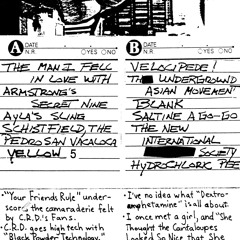 A DATE
N.R. ○YES ○NO
THE MAN I FELL
IN LOVE WITH
ARMSTRONG'S
SECRET NINE
AYLA'S SLING
SCHISTFIELD, THE
PEDRO SAN VACALOCA
YELLOW 5
B DATE
N.R. ○YES ○NO
VELOCIPEDE!
THE UNDERGROUND
ASIAN MOVEMENT
BLANK
SALTINE A-GO-GO
THE NEW
INTERNATIONAL
SOCIETY
HYDROCHLORK PEE
• "Your Friends Rule" under-
scores the camaraderie felt
by C.R.D.'s Fans.
• C.R.D. goes high tech with
"Black Powder Technology."
• I've no idea what "Dextro-
amphetamine" is all about.
• I once met a girl, and "She
Thought the Cantaloupes
Looked So Nice that She